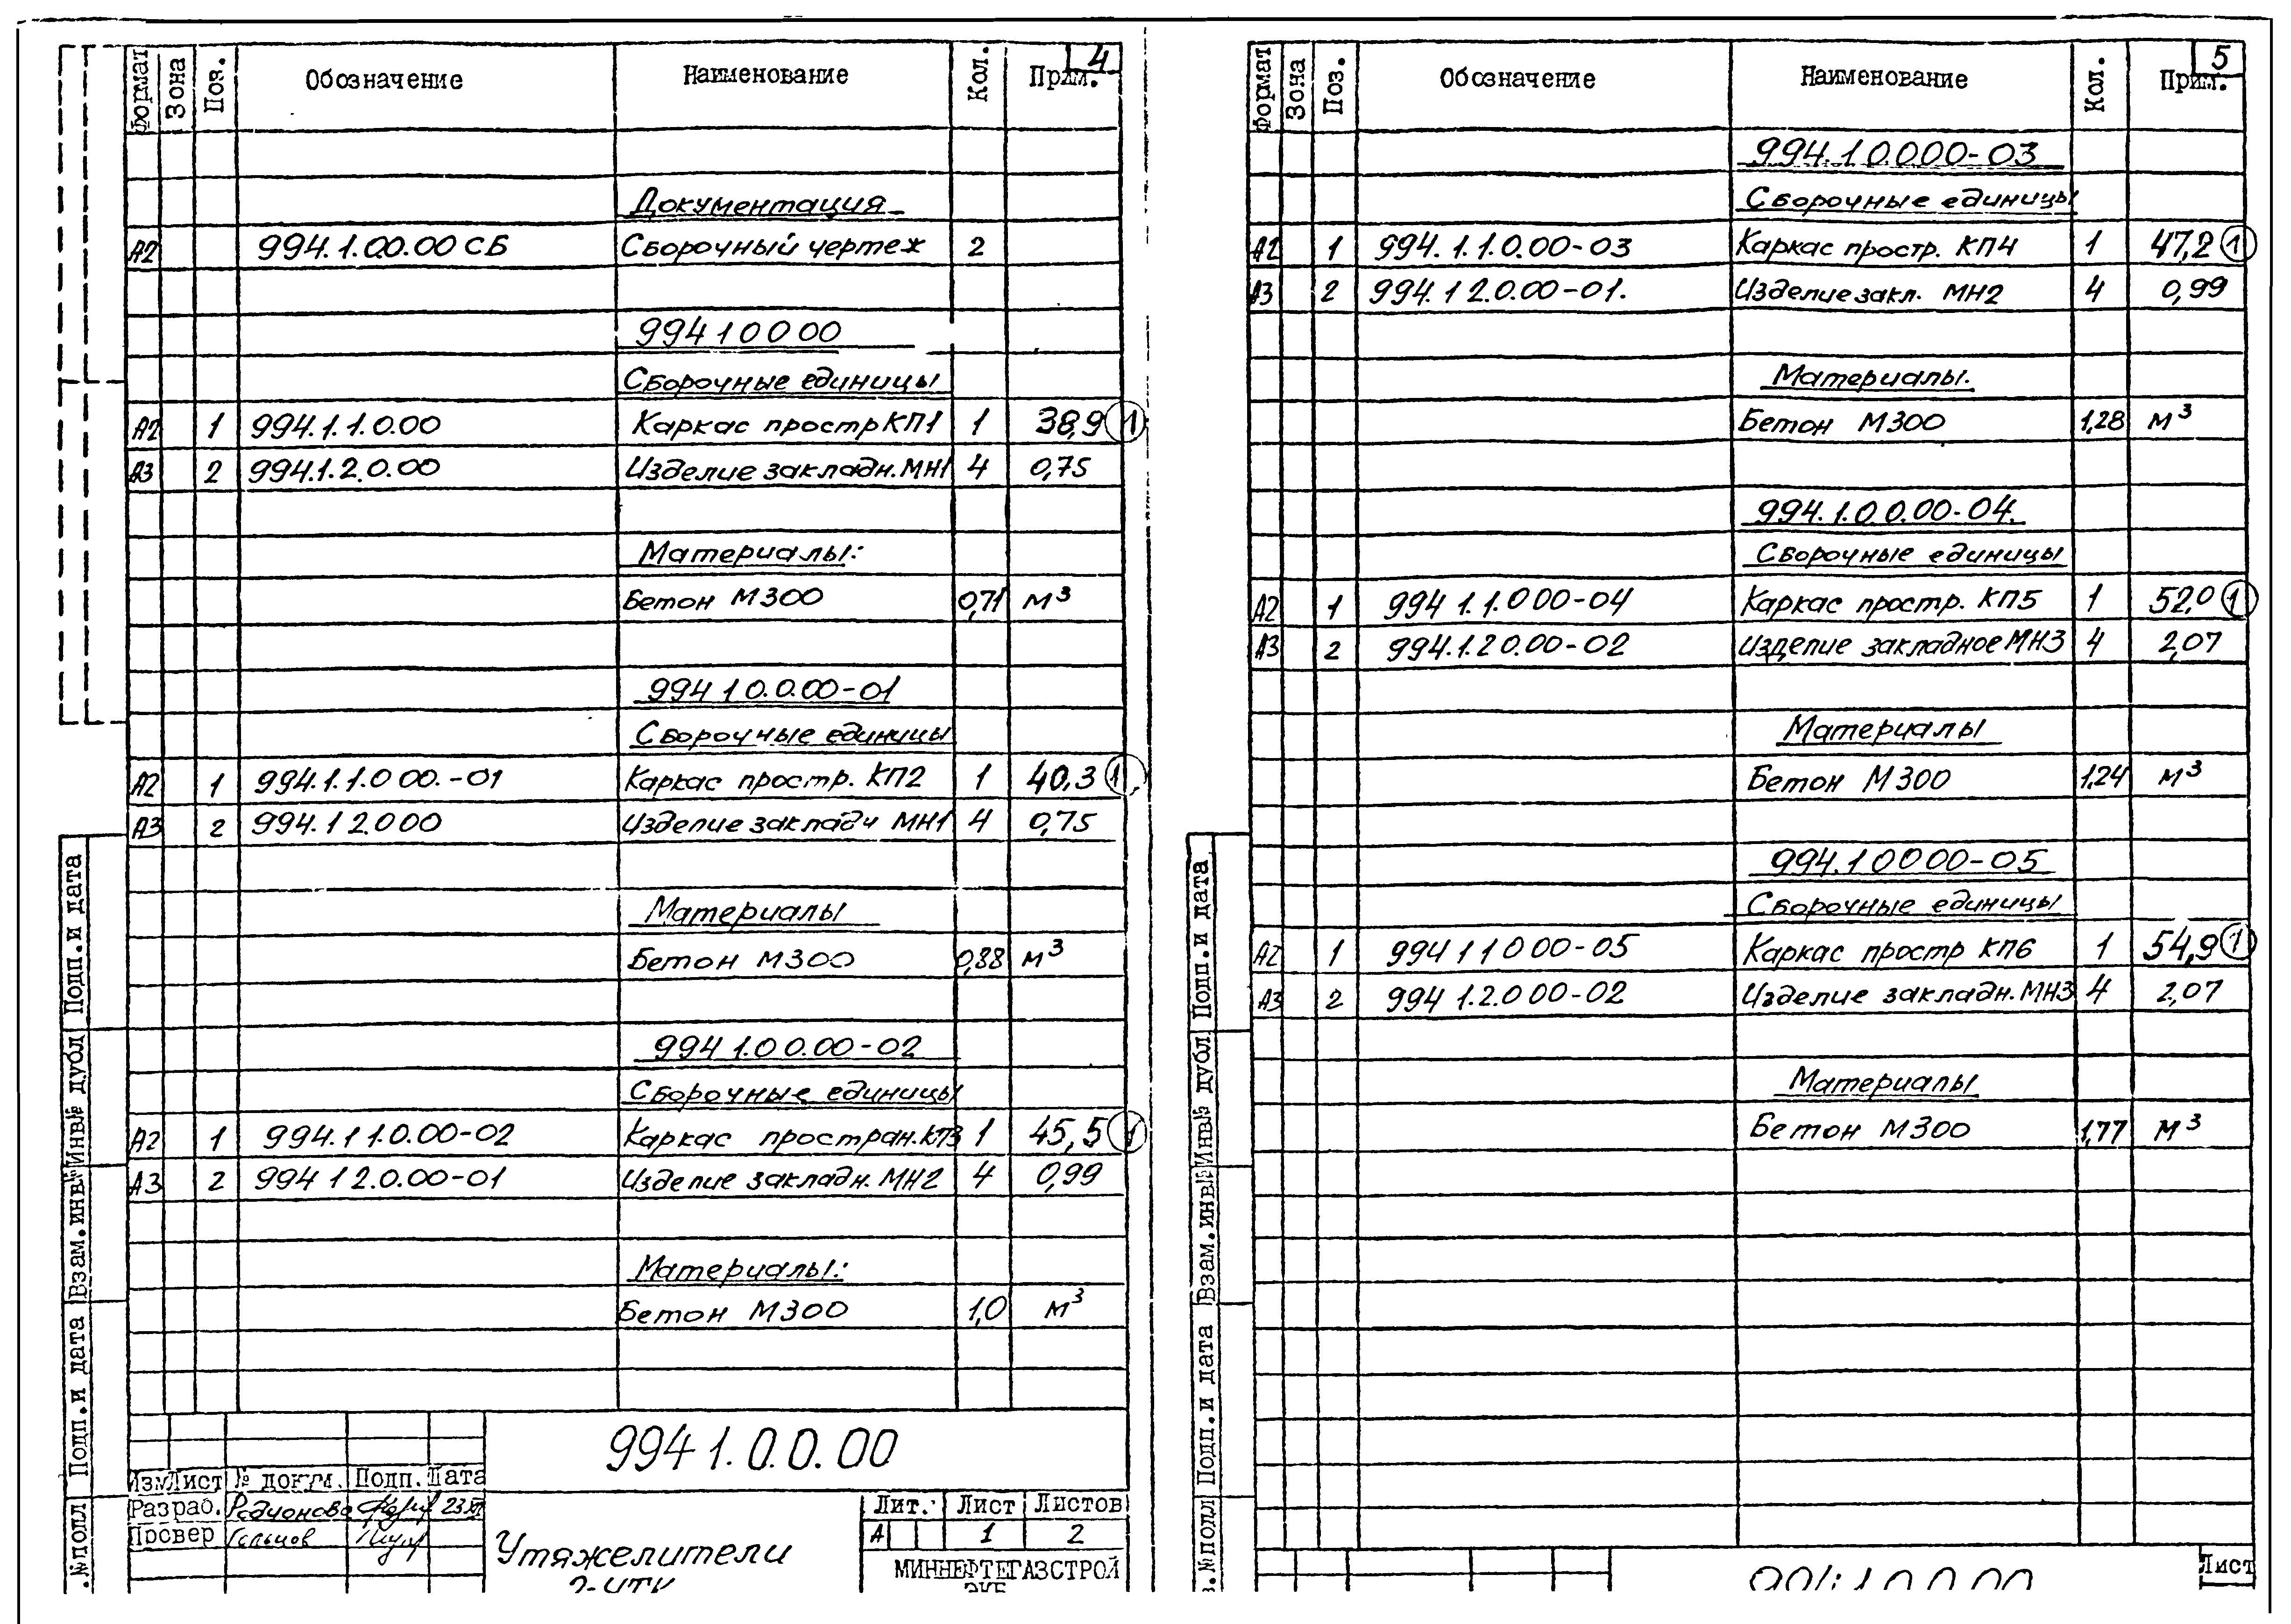 4
Формат Зона Поз. Обозначение Наименование Кол. Прим.
Документация
А2 994.1.00.00 СБ Сборочный чертеж 2
994 1 0 0 00
Сборочные единицы
А2 1 994.1.1.0.00 Каркас простр КП1 1 38,9 1
А3 2 994.1.2.0.00 Изделие закладн. МН1 4 0,75
Материалы:
Бетон М300 0,71 м³
994 1 0.0.00-01
Сборочные единицы
А2 1 994.1.1.0 00.-01 Каркас простр. КП2 1 40,3 1
А3 2 994.1 2.0 00 Изделие закладн МН1 4 0,75
Материалы
Бетон М300 0,88 м³
994 1.0 0.00-02
Сборочные единицы
А2 1 994.1 1.0.00-02 Каркас простран. КП3 1 45,5 1
А3 2 994 1 2.0.00-01 Изделие закладн. МН2 4 0,99
Материалы:
Бетон М300 1,0 м³
994 1.0.0.00
Изм Лист № докум. Подп. Дата
Разраб. Родионова
Провер Гольцов
Утяжелители
2-УТК
Лит. Лист Листов
А 1 2
МИННЕФТЕГАЗСТРОЙ
ЭКБ
№ подл Подп. и дата Взам. инв№ Инв№ дубл Подп. и дата
5
Формат Зона Поз. Обозначение Наименование Кол. Прим.
994.1 0.000-03
Сборочные единицы
А2 1 994.1.1.0.00-03 Каркас простр. КП4 1 47,2 1
А3 2 994.1 2.0.00-01. Изделие закл. МН2 4 0,99
Материалы.
Бетон М300 1,28 м³
994.1.0.0.00-04.
Сборочные единицы
А2 1 994 1.1.0 00-04 Каркас простр. КП5 1 52,0 1
А3 2 994.1.2 0.00-02 Изделие закладное МН3 4 2,07
Материалы
Бетон М300 1,24 м³
994.1 0 0 00-05
Сборочные единицы
А2 1 994 1 1 0 00-05 Каркас простр КП6 1 54,9 1
А3 2 994 1.2.0 00-02 Изделие закладн. МН3 4 2,07
Материалы
Бетон М300 1,77 м³
994.1 0.0.00
Лист
в.№ подл Подп. и дата Взам. инв№ Инв№ дубл Подп. и дата